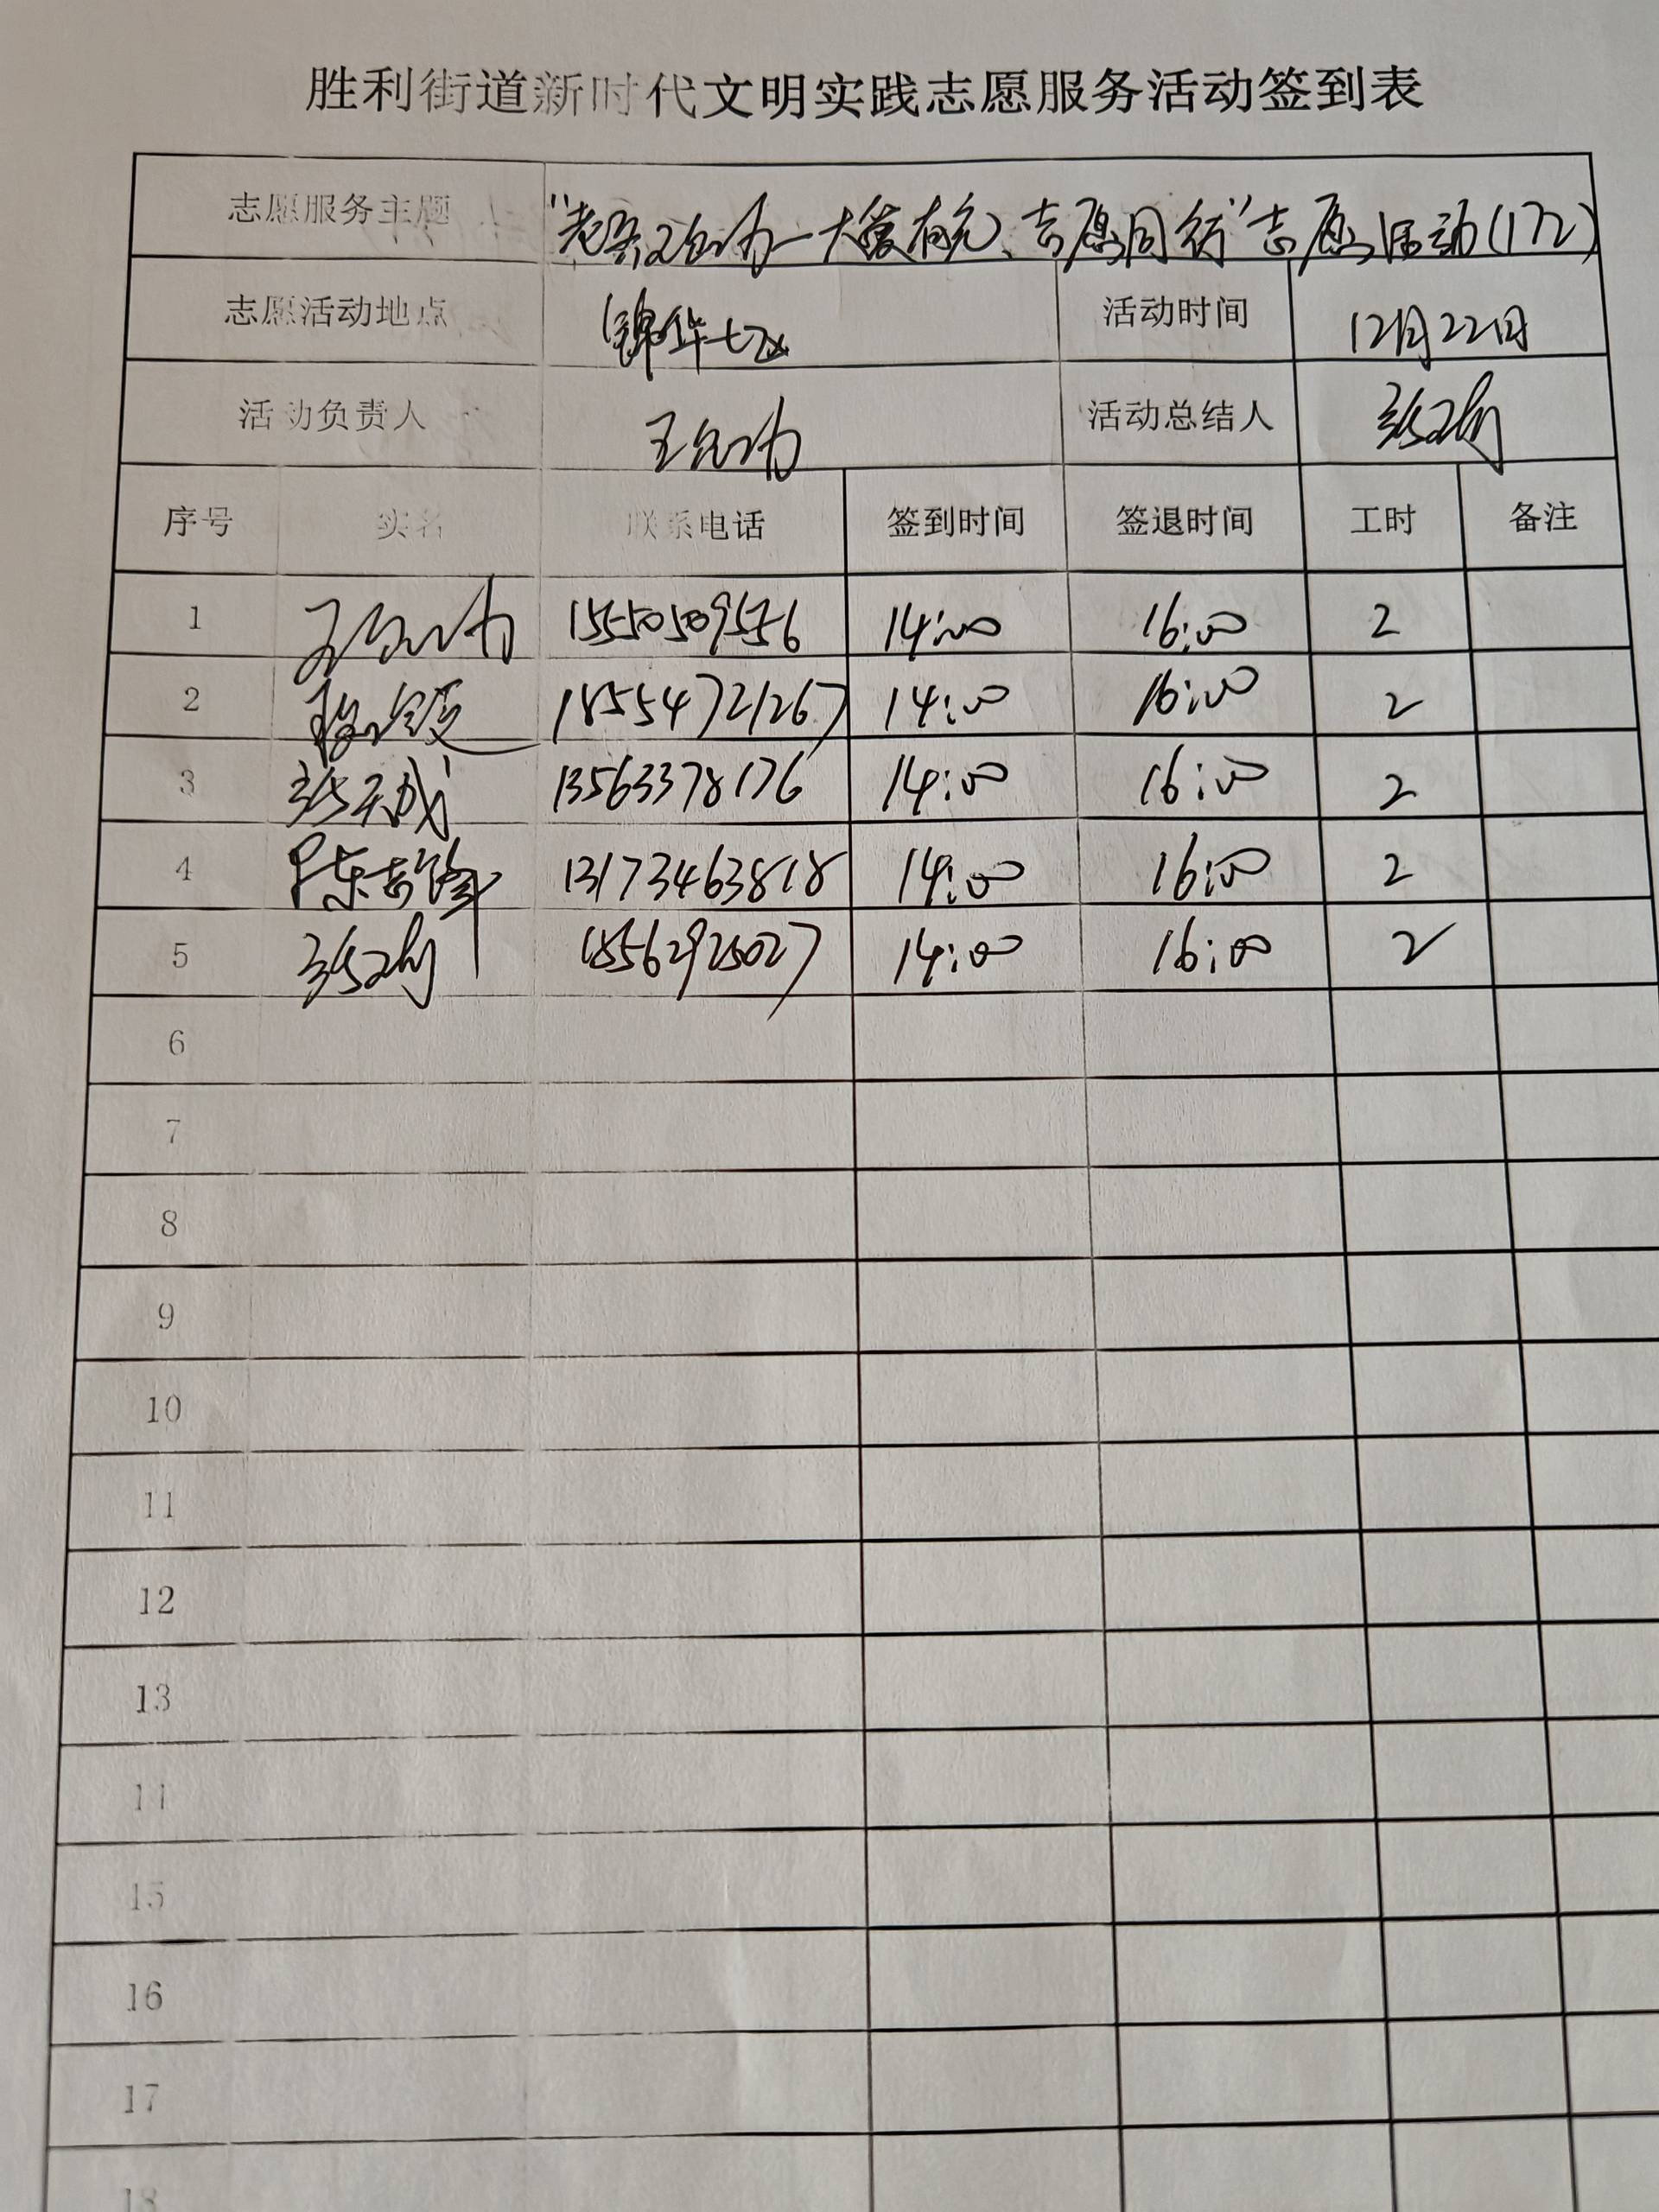 胜利街道新时代文明实践志愿服务活动签到表
志愿服务主题 "老兵王允功—大爱有光、志愿同行"志愿活动(172)
志愿活动地点 锦华七区 活动时间 12月22日
活动负责人 王允功 活动总结人
序号 实名 联系电话 签到时间 签退时间 工时 备注
1 王允功 15550509556 14:00 16:00 2
2 18554721267 14:00 16:00 2
3 张天成 13563378176 14:00 16:00 2
4 陈志锋 13173463818 14:00 16:00 2
5 18562925027 14:00 16:00 2
6
7
8
9
10
11
12
13
14
15
16
17
18